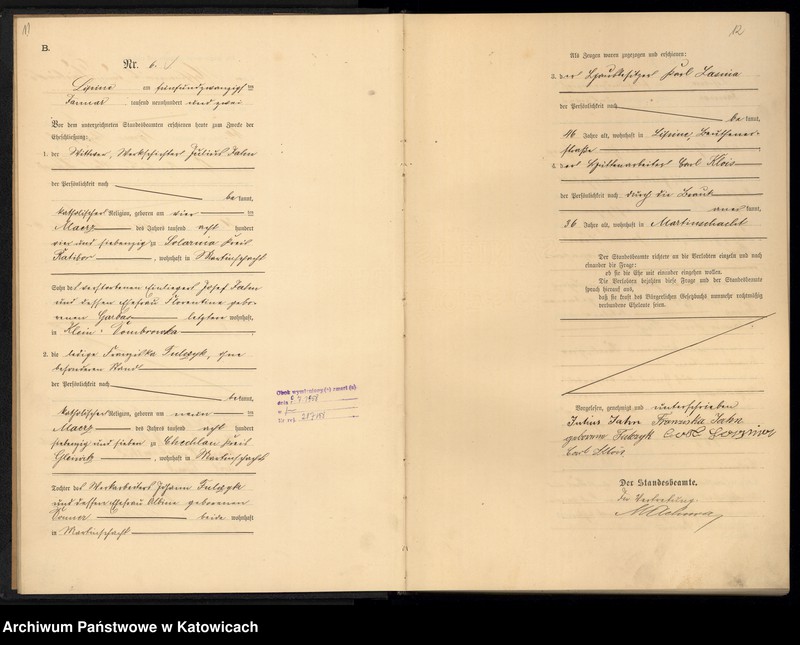 11
B.
Nr. 6.
Lipine am fünfundzwanzigsten
Januar tausend neunhundert und zwei
Vor dem unterzeichneten Standesbeamten erschienen heute zum Zwecke der
Eheschließung:
1. der Wittwer, Julius Jahn
der Persönlichkeit nach
be kannt,
katholischer Religion, geboren am vier ten
Maerz des Jahres tausend acht hundert
vier und siebenzig zu Kreis
Ratibor, wohnhaft in Martinschacht
Sohn des verstorbenen Einliegers Josef Jahn
und dessen Ehefrau Florentine gebo-
renen letztere wohnhaft
in Klein-Dombrowka
2. die ledige Franziska, ohne
besonderen Stand
der Persönlichkeit nach
be kannt,
katholischer Religion, geboren am neun ten
Maerz des Jahres tausend acht hundert
siebenzig und sieben zu Chechlau Kreis
Gleiwitz, wohnhaft in Martinschacht
Tochter des Werkarbeiters Johann
und dessen Ehefrau geborenen
beide wohnhaft
in Martinschacht
12
Als Zeugen waren zugezogen und erschienen:
3. der Hausbesitzer Karl
der Persönlichkeit nach
be kannt,
46 Jahre alt, wohnhaft in Lipine, Beuthener-
straße
4. der Hüttenarbeiter Carl Klois
der Persönlichkeit nach durch die Braut
aner kannt,
36 Jahre alt, wohnhaft in Martinschacht
Der Standesbeamte richtete an die Verlobten einzeln und nach
einander die Frage:
ob sie die Ehe mit einander eingehen wollen.
Die Verlobten bejahten diese Frage und der Standesbeamte
sprach hierauf aus,
daß sie kraft des Bürgerlichen Gesetzbuchs nunmehr rechtmäßig
verbundene Eheleute seien.
Vorgelesen, genehmigt und unterschrieben
Julius Jahn Franziska Jahn
geborene
Carl Klois
Der Standesbeamte.
In Vertretung.
Archiwum Państwowe w Katowicach